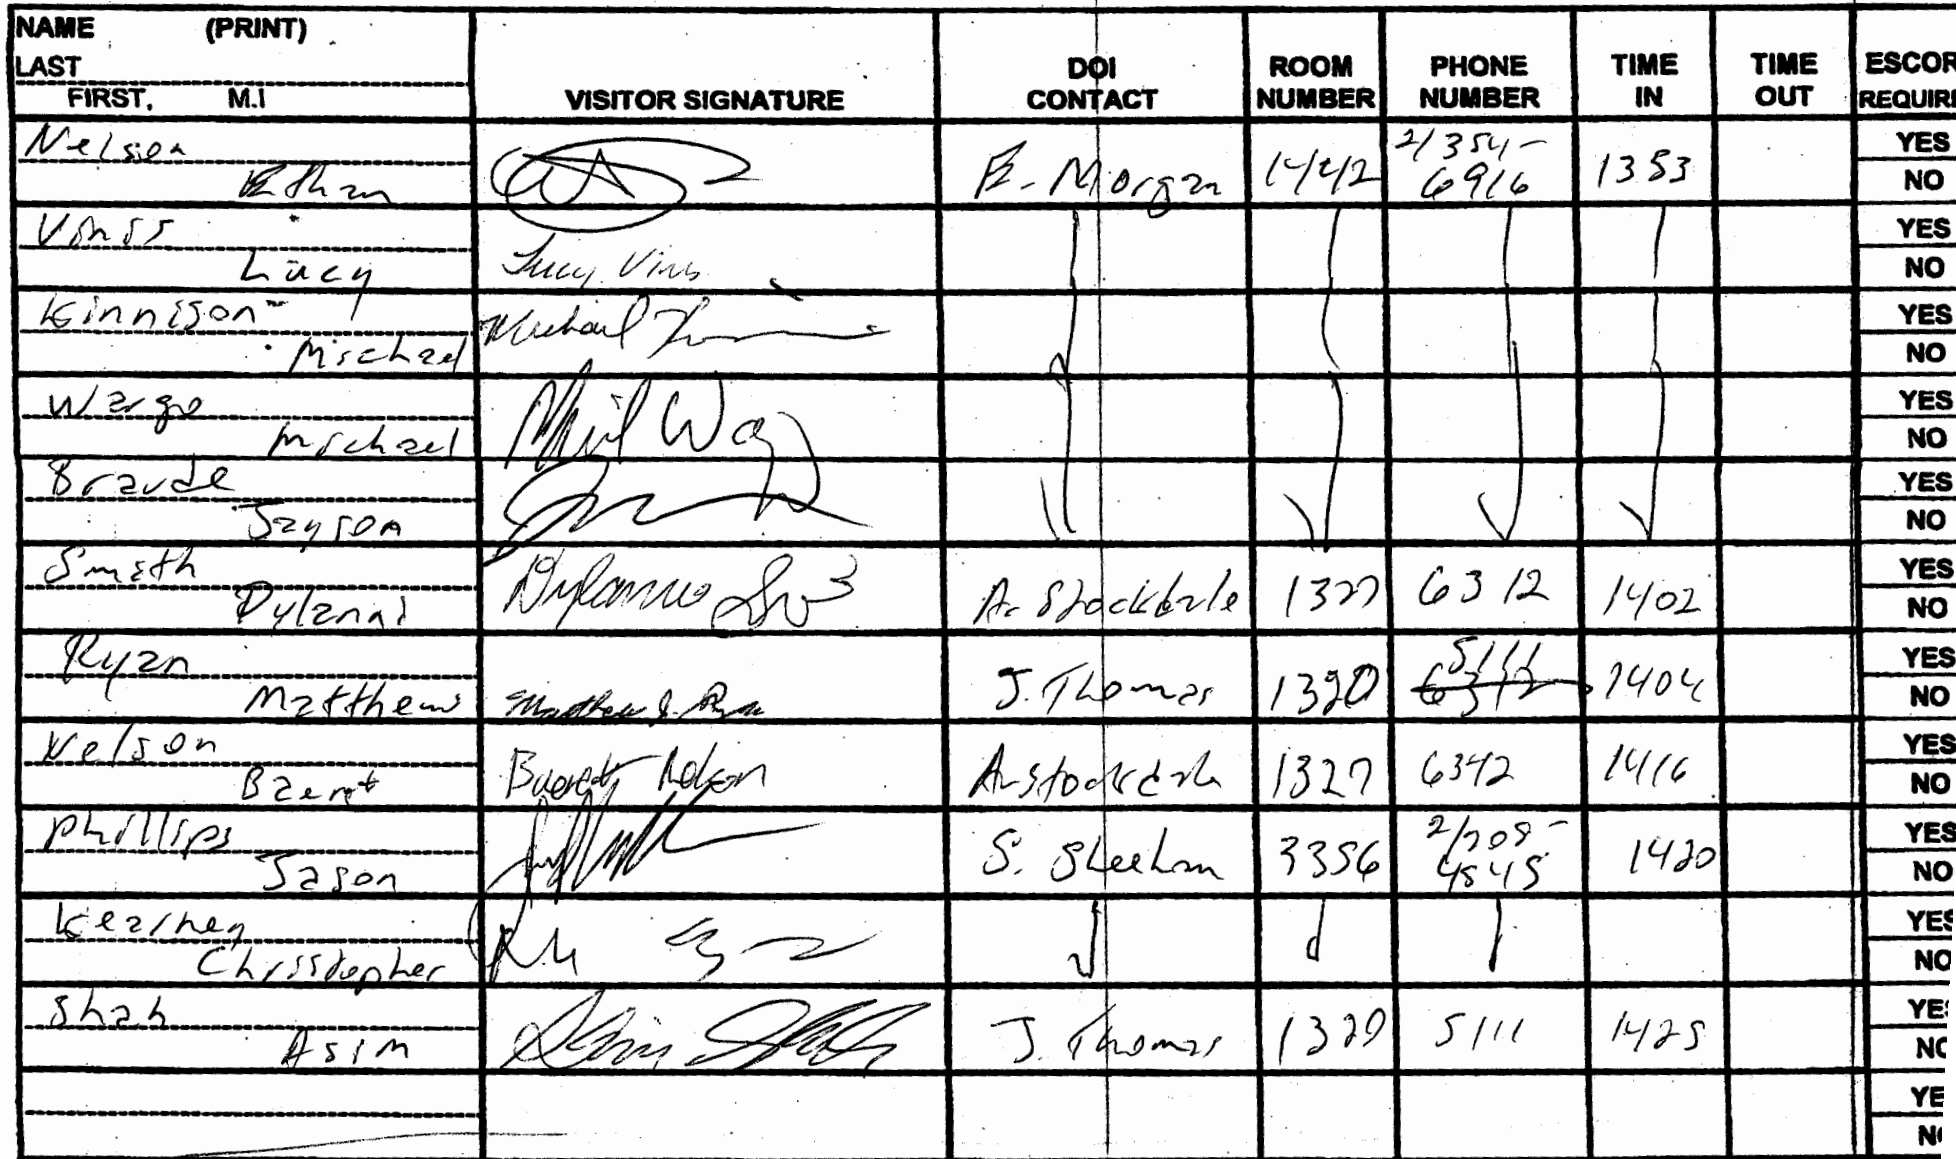 NAME (PRINT)
LAST
FIRST, M.I
VISITOR SIGNATURE
DOI CONTACT
ROOM NUMBER
PHONE NUMBER
TIME IN
TIME OUT
ESCOR
REQUIRE
Nelson
Ethan
E. Morgan 1442 2/354-
6916 1353
YES
NO
Vinis
Lucy
Lucy Vinis
YES
NO
Kinnison
Michael
Michael
YES
NO
Wargo
Michael
YES
NO
Braude
Jayson
YES
NO
Smith
Dylanni
A. Stockdale 1327 6312 1402
YES
NO
Ryan
Matthews
Matthew J. Ryan
J. Thomas 1320 5111
6312 1404
YES
NO
Nelson
Nelson
A. Stockdale 1327 6342 1416
YES
NO
Phillips
Jason
S. Sheehan 3356 2/208-
4545 1420
YES
NO
Kearney
Christopher
YES
NO
Shah
Asim
Asim Shah
J. Thomas 1320 5111 1425
YES
NO
YE
N